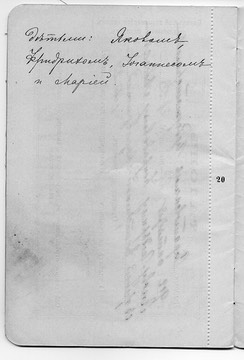 дѣтьми: Яковомъ,
Фридрихомъ, Іоаннесомъ
и Маріей.
20